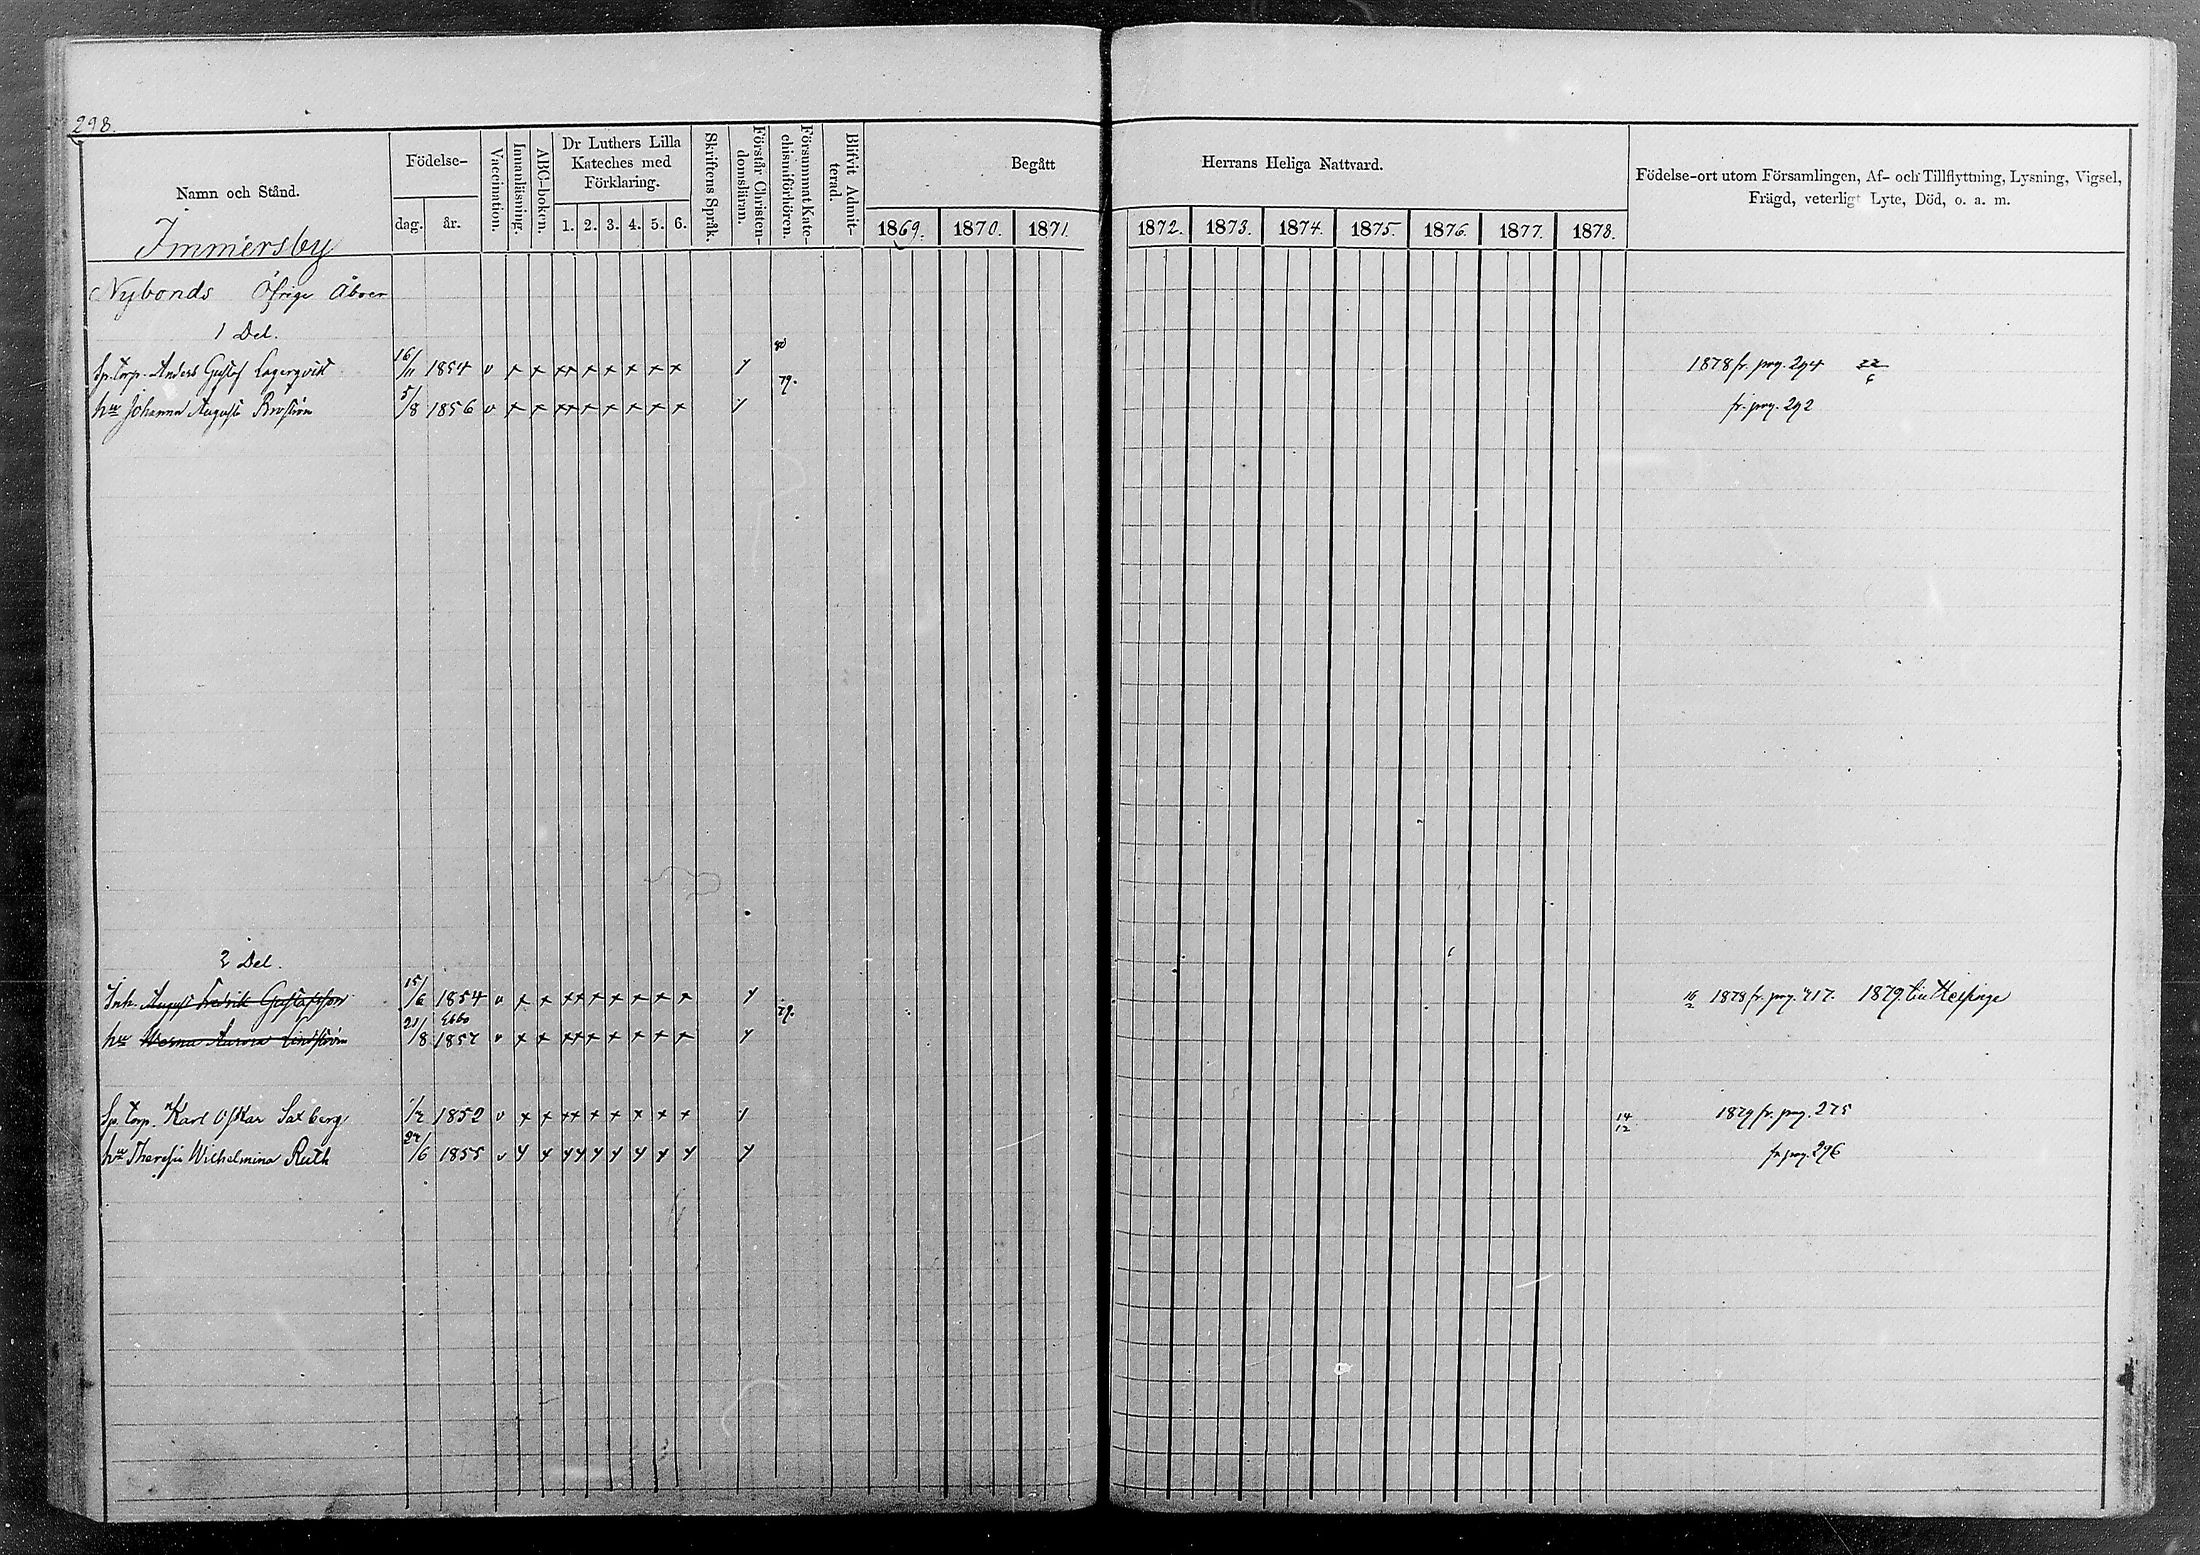 298.
Namn och Stånd.
Födelse-
dag. år.
Vaccination.
Innanläsning.
ABC-boken.
Dr Luthers Lilla
Kateches med
Förklaring.
1. 2. 3. 4. 5. 6.
Skriftens Språk.
Förstår Christen-
domsläran.
Försummat Kate-
chismiförhören.
Blifvit Admit-
terad.
Begått Herrans Heliga Nattvard.
1869. 1870. 1871. 1872. 1873. 1874. 1875. 1876. 1877. 1878.
Födelse-ort utom Församlingen, Af- och Tillflyttning, Lysning, Vigsel,
Frägd, veterligt Lyte, Död, o. a. m.
Immersby
Nybonds Öfrige Åboer
1 Del.
80
Sp. Torp. Anders Gustaf Lagerqvist 16/11 1854 v x x xx x x x x x y 1878 fr. pag. 294
79.
hu Johanna Augusta Broström 5/8 1856 v x x xx x x x x x y fr. pag. 292
2 Del.
Inh. August Fredrik Gustafsson 15/6 1854 v x x xx x x x x x y 16/2 1878 fr. pag. 417. 1879 till Helsinge
Ebbo
79.
hu Verna Aurora Lindström 21/8 1857 v x x xx x x x x x y
Sp. Torp. Karl Oskar Saxberg 1/2 1852 v x x xx x x x x x y 14/12 1879 fr. pag. 275
hu Theresia Wilhelmina Ruth 27/6 1855 v y y yy y y y y y y fr. pag. 296